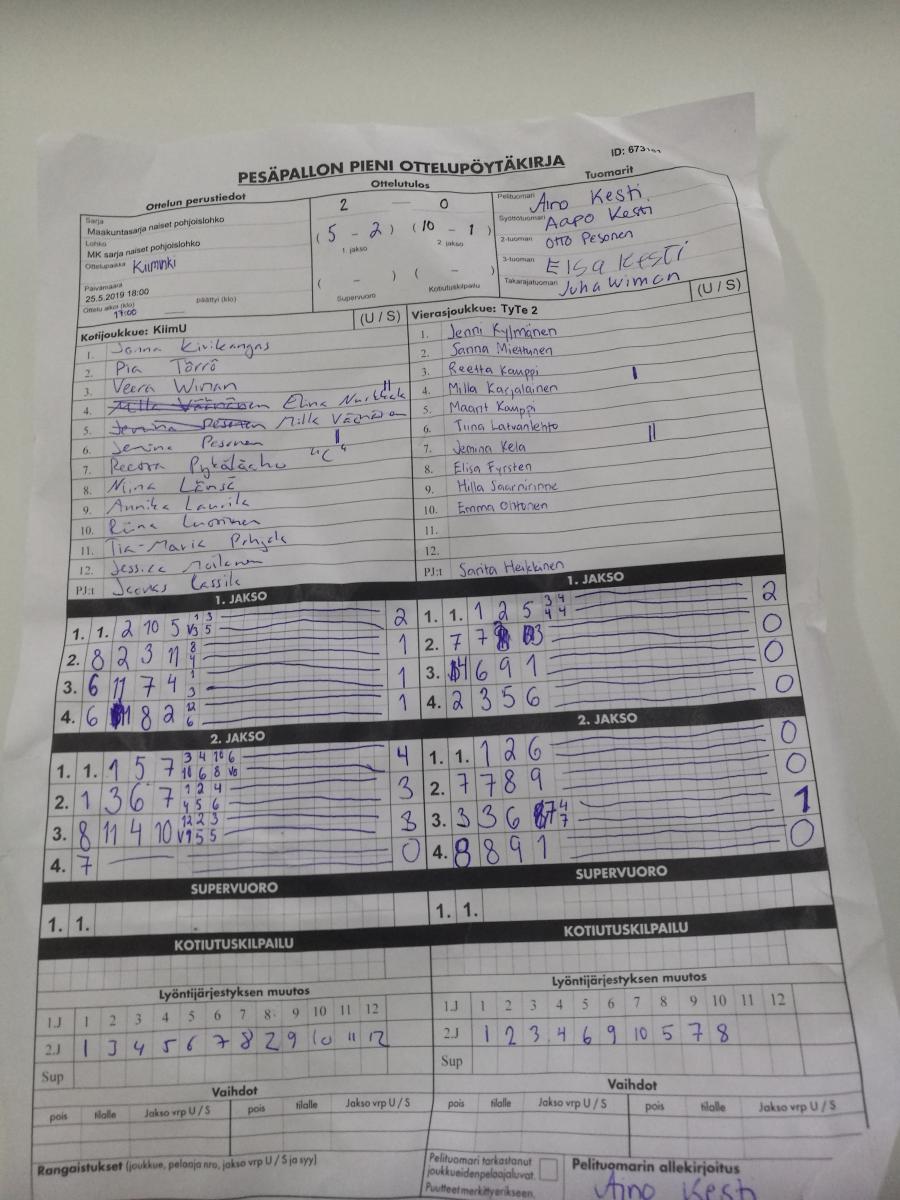 PESÄPALLON PIENI OTTELUPÖYTÄKIRJA
ID: 673
Ottelun perustiedot
Ottelutulos
Tuomarit
Sarja
Maakuntasarja naiset pohjoislohko
Lohko
MK sarja naiset pohjoislohko
Ottelupaikka Kiiminki
Päivämäärä
25.5.2019 18:00
Ottelu alkoi (klo) 17:00 päättyi (klo)
2 — 0
(5 - 2) (10 - 1)
1. jakso 2. jakso
( - ) ( - )
Supervuoro Kotiutuskilpailu
Pelituomari Aino Kesti
Syöttötuomari Aapo Kesti
2-tuomari Otto Pesonen
3-tuomari Elsa Kesti
Takarajatuomari Juha Wiman
Kotijoukkue: KiimU (U / S)
1. Jonna Kivikangas
2. Pia Törrö
3. Veera Wiman
4. Milla Väänänen Elina
5. Jemina Pesonen Milla Väänänen
6. Jemina Pesonen
7. Reetta "C"
8. Nina Länsä
9. Annika Laurila
10. Riina Luosinen
11. Tia-Maria Pohjola
12. Jessica Moilanen
PJ:t Joonas Lassila
Vierasjoukkue: TyTe 2 (U / S)
1. Jenni Kylmänen
2. Sanna Miettunen
3. Reetta Kauppi I
4. Milla Karjalainen
5. Maarit Kauppi
6. Tiina Latvanlehto
7. Jemina Kela II
8. Elisa Fyrsten
9. Hilla Saarnirinne
10. Emma Ohtonen
11.
12.
PJ:t Sarita Heikkinen
1. JAKSO
1. 1. 2 10 5 1 3 V3 5 2
2. 8 2 3 11 8 4 1
3. 6 11 7 4 1 3 1
4. 6 11 8 2 12 6 1
2. JAKSO
1. 1. 1 5 7 3 4 10 6 10 6 8 V6 4
2. 1 3 6 7 1 2 4 4 5 6 3
3. 8 11 4 10 12 2 3 V1 5 5 3
4. 7 0
SUPERVUORO
1. 1.
KOTIUTUSKILPAILU
1. JAKSO
1. 1. 1 2 5 3 4 4 4 2
2. 7 7 8 3 0
3. 4 6 9 1 0
4. 2 3 5 6 0
2. JAKSO
1. 1. 1 2 6 0
2. 7 7 8 9 0
3. 3 3 6 7 4 7 1
4. 8 8 9 1 0
SUPERVUORO
1. 1.
KOTIUTUSKILPAILU
Lyöntijärjestyksen muutos
1.J 1 2 3 4 5 6 7 8 9 10 11 12
2.J 1 3 4 5 6 7 8 2 9 10 11 12
Sup
Lyöntijärjestyksen muutos
1.J 1 2 3 4 5 6 7 8 9 10 11 12
2.J 1 2 3 4 6 9 10 5 7 8
Sup
Vaihdot
pois tilalle Jakso vrp U / S pois tilalle Jakso vrp U / S
Vaihdot
pois tilalle Jakso vrp U / S pois tilalle Jakso vrp U / S
Rangaistukset (joukkue, pelaaja nro, jakso vrp U / S ja syy)
Pelituomari tarkastanut
joukkueiden pelaajaluvat.
Puutteet merkitty erikseen.
Pelituomarin allekirjoitus
Aino Kesti